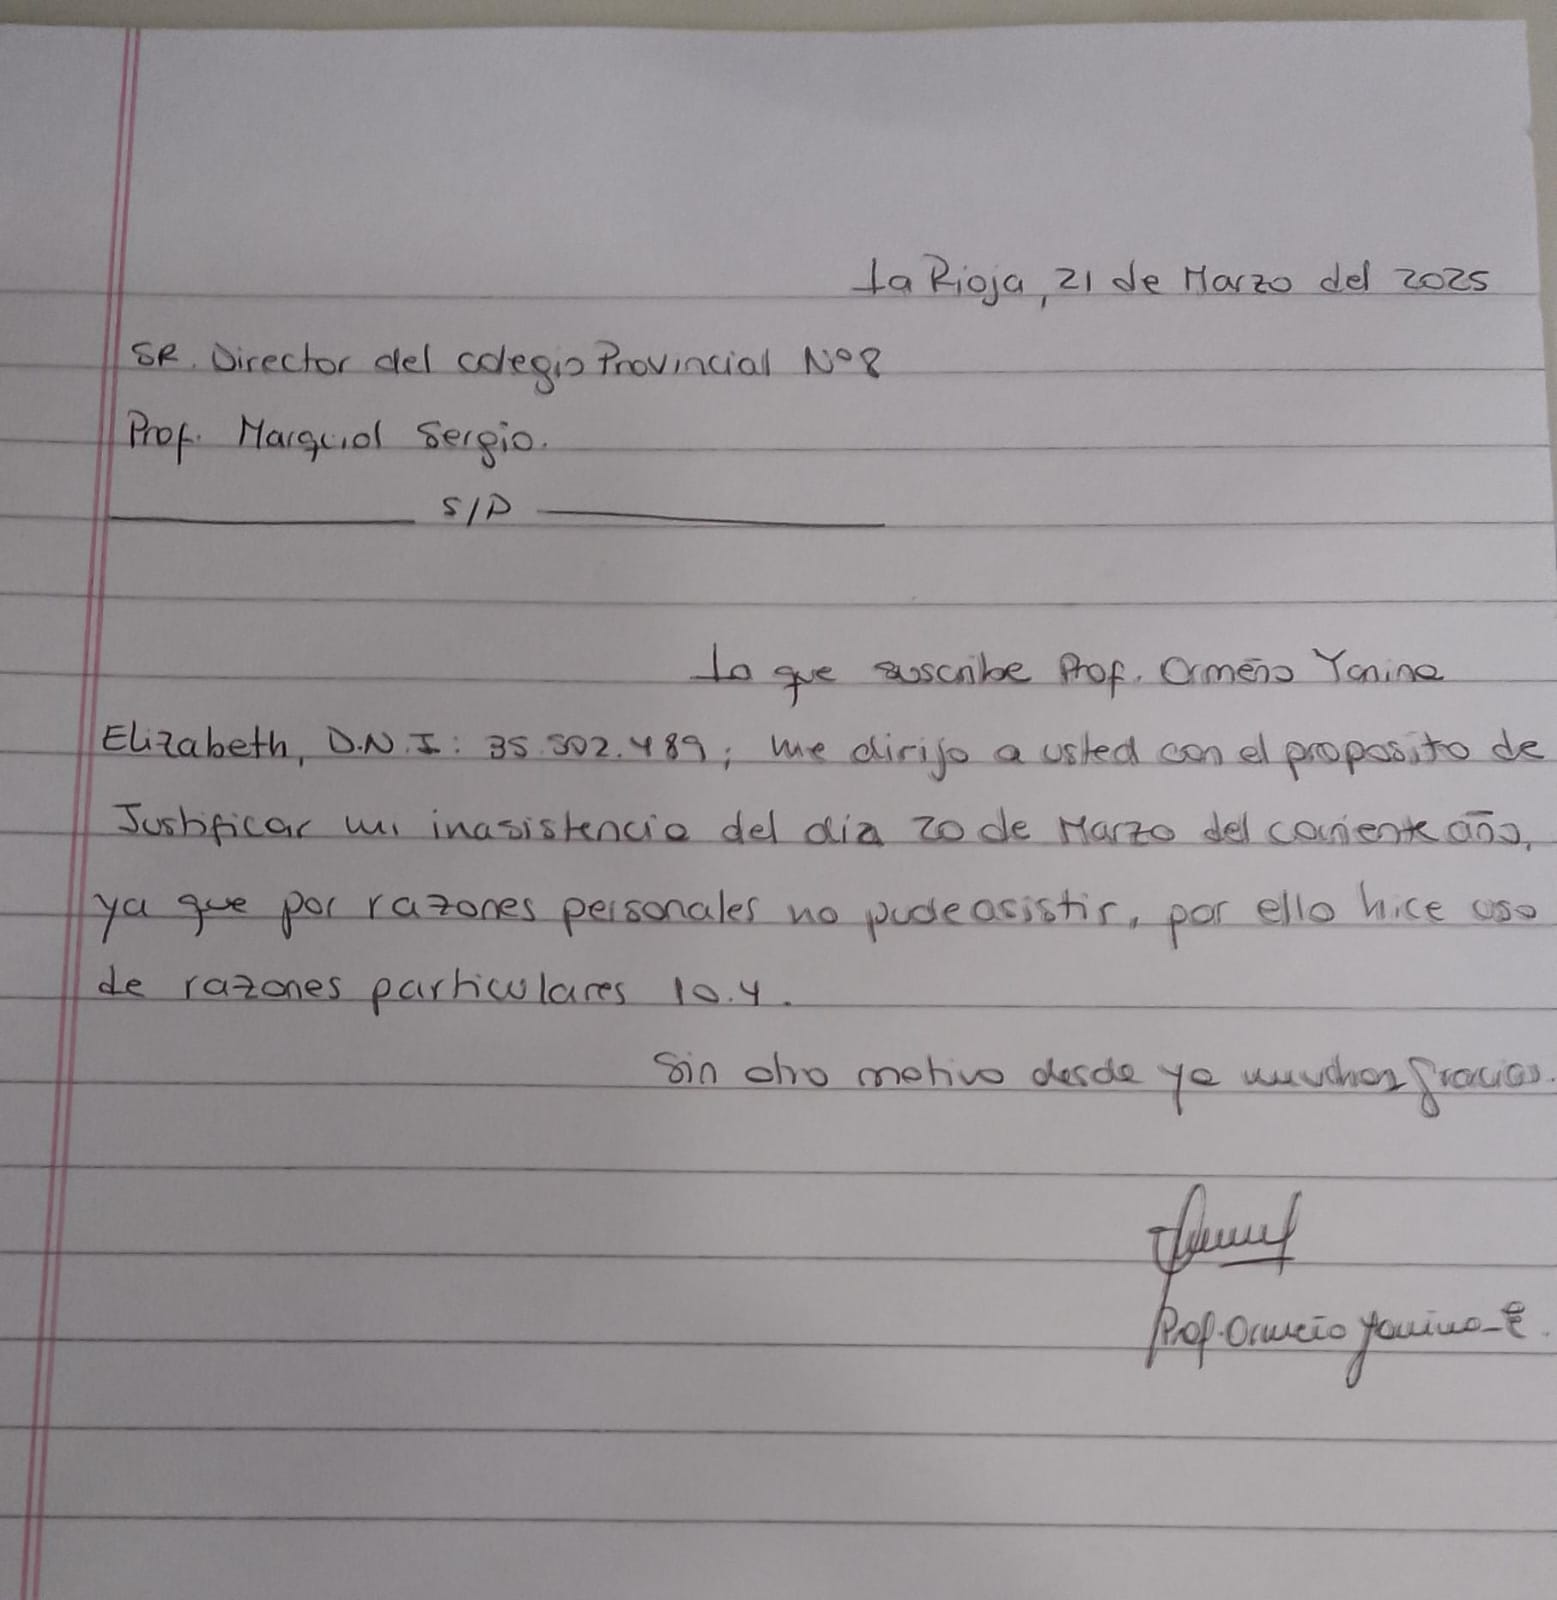 La Rioja, 21 de Marzo del 2025
SR. Director del colegio Provincial Nº8
Prof. Marquiol Sergio.
S/D
La que suscribe Prof. Ormeño Yanina
Elizabeth, D.N.I: 35.502.489; me dirijo a usted con el proposito de
Justificar mi inasistencia del dia 20 de Marzo del corriente año,
ya que por razones personales no pude asistir, por ello hice uso
de razones particulares 10.4.
Sin otro motivo desde ya muchas gracias.
Prof. Ormeño Yanina E.